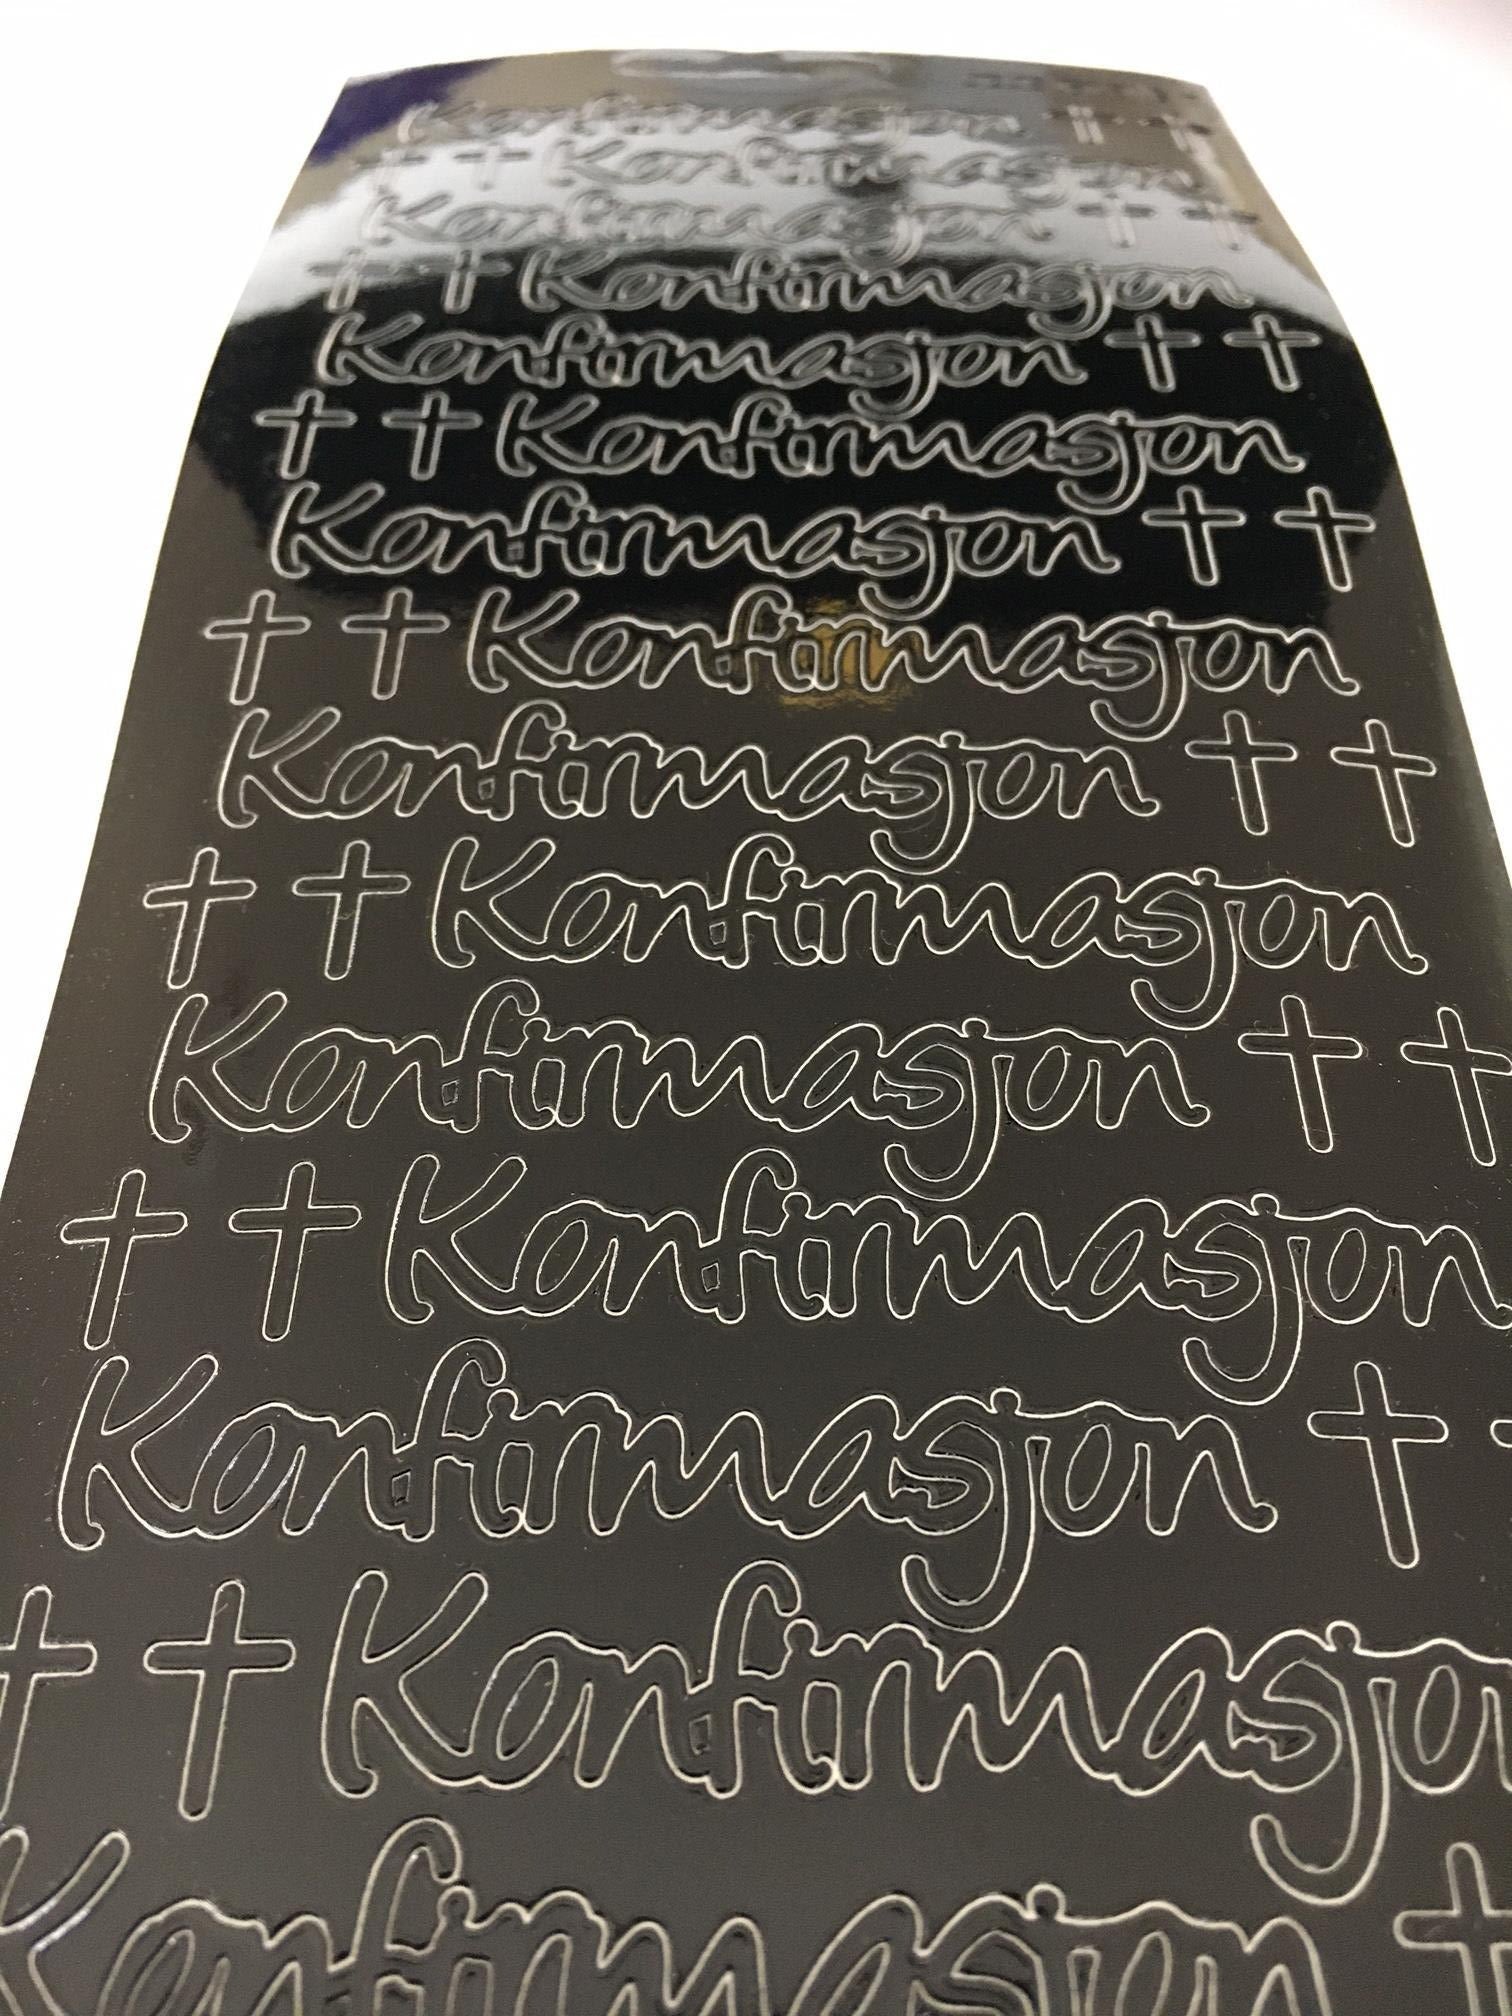 Konfirmasjon
Konfirmasjon
Konfirmasjon
Konfirmasjon
Konfirmasjon
Konfirmasjon
Konfirmasjon
Konfirmasjon
Konfirmasjon
Konfirmasjon
Konfirmasjon
Konfirmasjon
Konfirmasjon
Konfirmasjon
Konfirmasjon